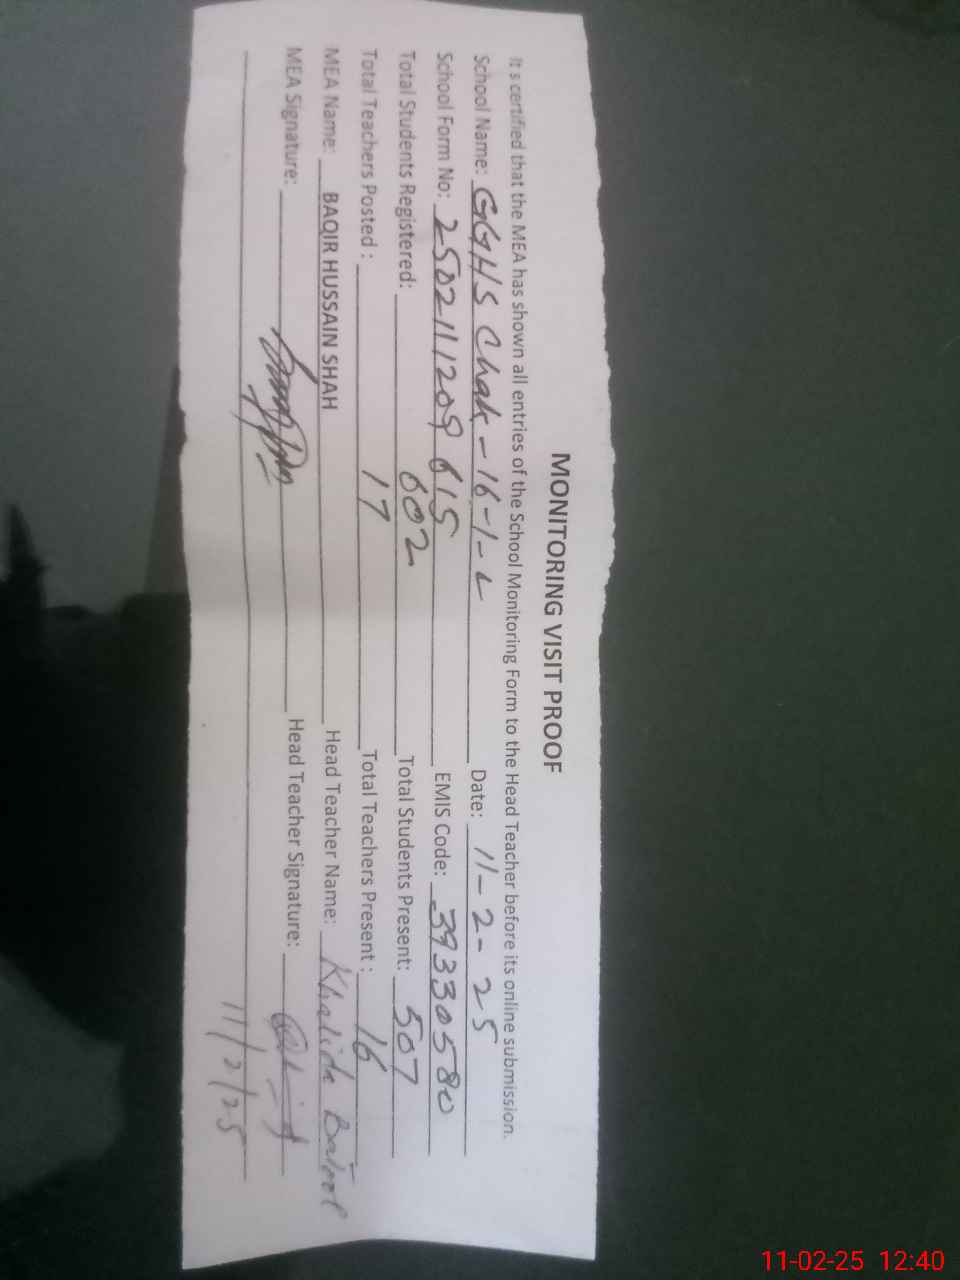 MONITORING VISIT PROOF
It s certified that the MEA has shown all entries of the School Monitoring Form to the Head Teacher before its online submission.
School Name: GGHS Chak - 16-1-L Date: 11-2-25
School Form No: 2502111209 615 EMIS Code: 39330580
Total Students Registered: 602 Total Students Present: 507
Total Teachers Posted : 17 Total Teachers Present : 16
MEA Name: BAQIR HUSSAIN SHAH Head Teacher Name: Khalida Batool
MEA Signature: Head Teacher Signature:
11/2/25
11-02-25 12:40